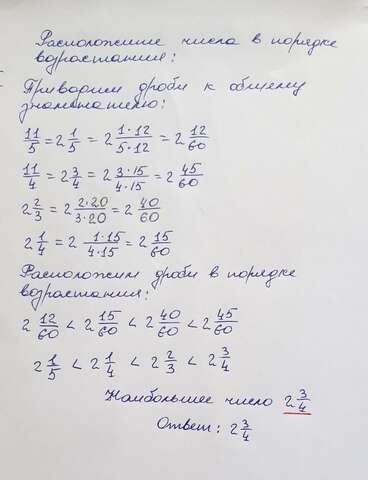 Расположите числа в порядке
возрастания:
Приводим дроби к общему
знаменателю:
11/5 = 2 1/5 = 2 1·12/5·12 = 2 12/60
11/4 = 2 3/4 = 2 3·15/4·15 = 2 45/60
2 2/3 = 2 2·20/3·20 = 2 40/60
2 1/4 = 2 1·15/4·15 = 2 15/60
Расположим дроби в порядке
возрастания:
2 12/60 < 2 15/60 < 2 40/60 < 2 45/60
2 1/5 < 2 1/4 < 2 2/3 < 2 3/4
Наибольшее число 2 3/4
Ответ: 2 3/4